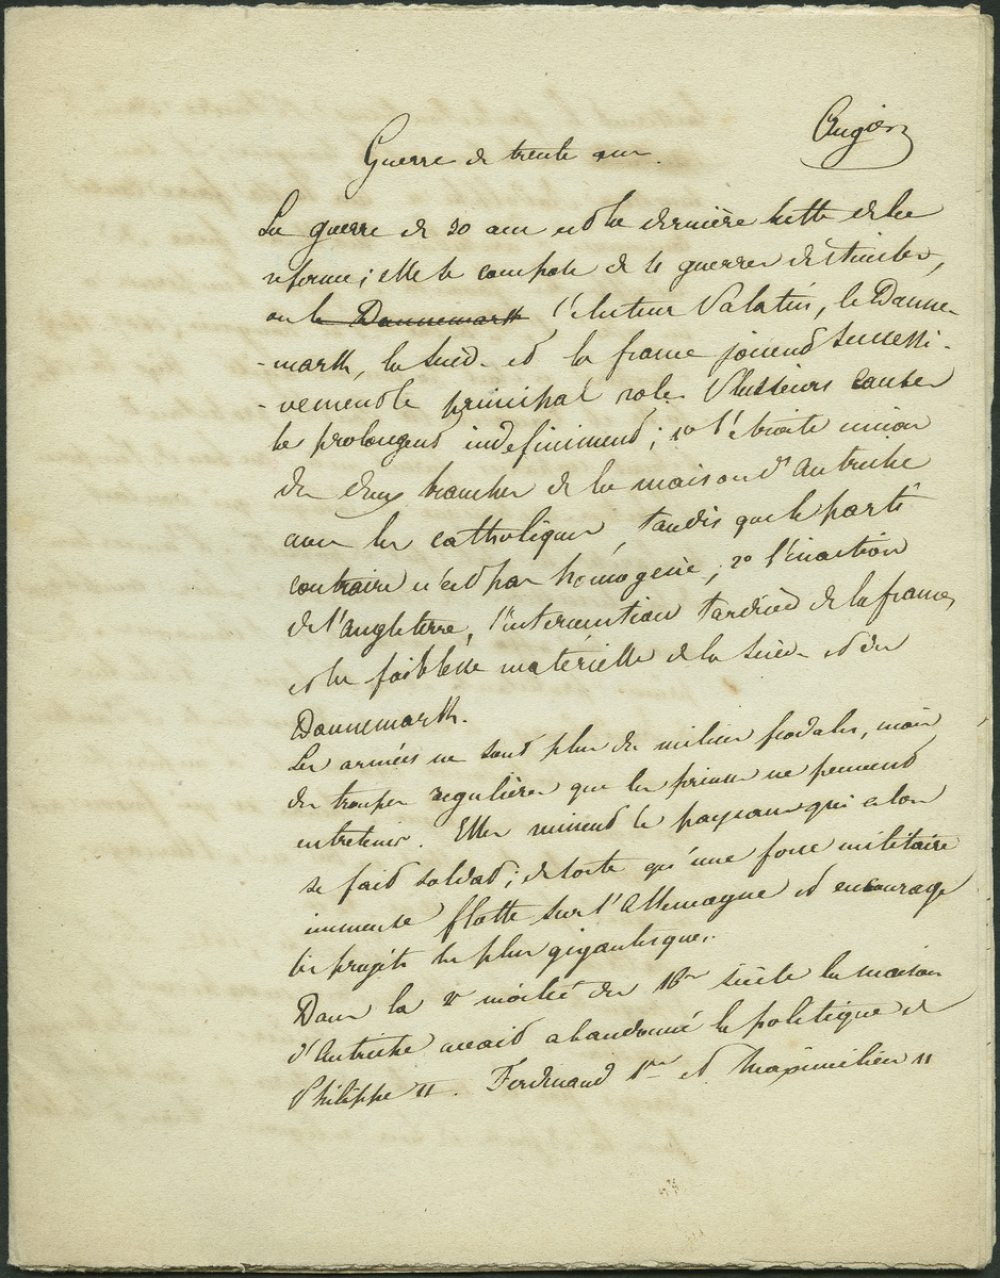 Augier
Guerre de trente ans.
La guerre de 30 ans est la dernière lutte de la
reforme; elle se compose de 4 guerres distinctes,
ou le Dannemark l'électeur Palatin, le Danne-
-mark, la Suède et la france jouent successi-
-vement le principal role. Plusieurs causes
la prolongent indefiniment; 1o l'étroite union
des deux branches de la maison d'Autriche
avec les catholiques, tandis que le parti
contraire n'est pas homogène; 2o l'inaction
de l'angleterre, l'intervention tardive de la france,
et la faiblesse matérielle de la Suède et du
Dannemark.
Les armées ne sont plus des milices féodales, mais
des troupes regulières que les princes ne peuvent
entretenir. Elles ruinent le paysan qui alors
se fait soldat; de sorte qu'une force militaire
immense flotte sur l'Allemagne et encourage
les projets les plus gigantesques.
Dans la 2e moitié du 16me siècle la maison
d'Autriche avait abandonné la politique de
Philippe II. Ferdinand 1er et Maximilien II